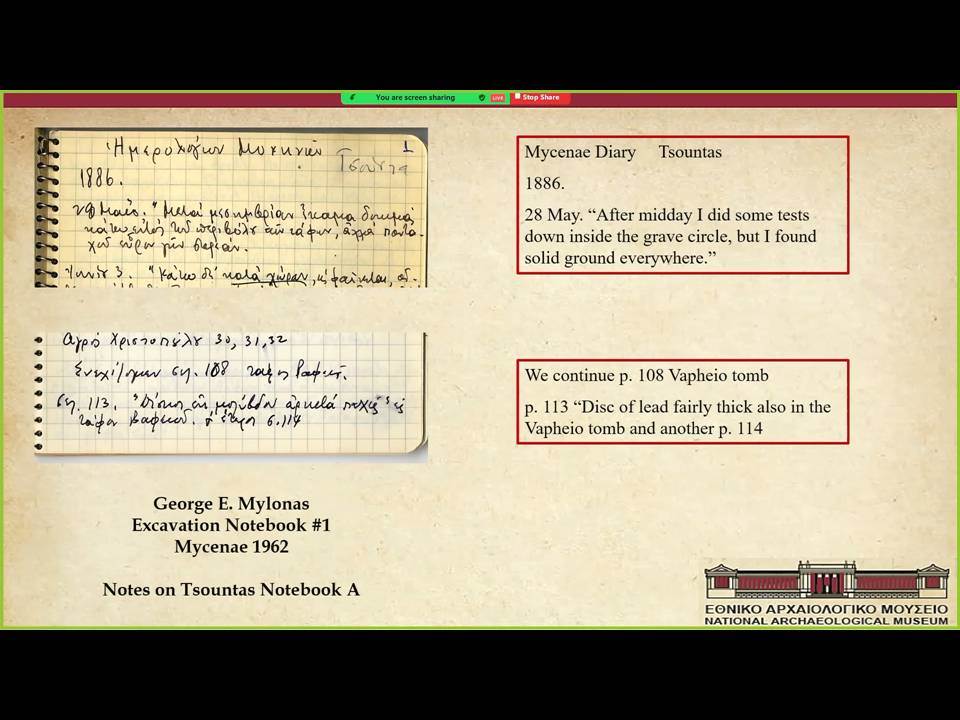 You are screen sharing LIVE Stop Share
Ἡμερολόγιον Μυκηνῶν Τσούντα 1
1886.
28 Μαΐου. "Μετὰ μεσημβρίαν ἔκαμα δοκιμὰς
κάτω ἐντὸς τοῦ περιβόλου τῶν τάφων, ἀλλὰ παντα-
χοῦ εὗρον γῆν στερεάν.
Ἰουνίου 3. "Κάτω δὲ κατὰ χώραν, ὡς φαίνεται,
Mycenae Diary Tsountas
1886.
28 May. “After midday I did some tests
down inside the grave circle, but I found
solid ground everywhere.”
Ἀγρὸς Χριστοπούλου 30, 31, 32
Συνεχίζομεν ση. 108 τάφος Βαφειοῦ.
ση. 113. μολύβδου ἀρκετὰ παχὺς
τάφον Βαφειοῦ. ἕτερος σ. 114
We continue p. 108 Vapheio tomb
p. 113 “Disc of lead fairly thick also in the
Vapheio tomb and another p. 114
George E. Mylonas
Excavation Notebook #1
Mycenae 1962
Notes on Tsountas Notebook A
ΕΘΝΙΚΟ ΑΡΧΑΙΟΛΟΓΙΚΟ ΜΟΥΣΕΙΟ
NATIONAL ARCHAEOLOGICAL MUSEUM